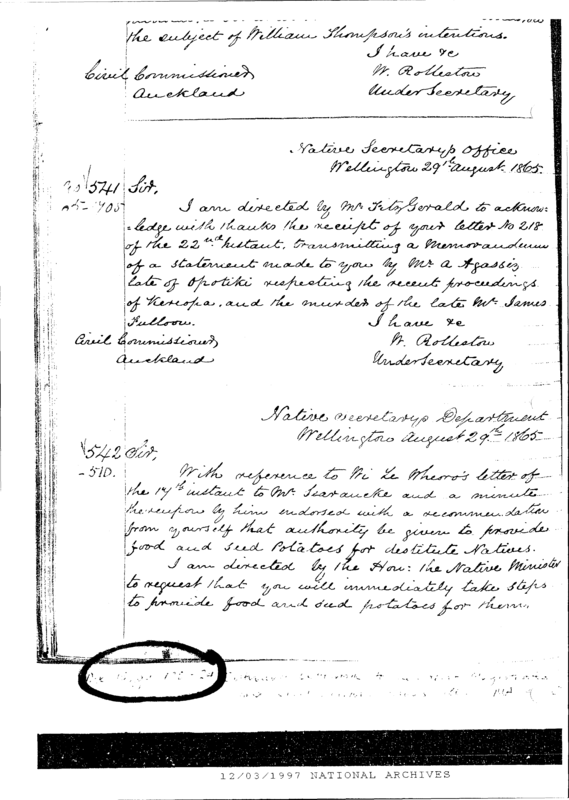 the subject of William Thompson's intentions.
I have &c
Civil Commissioner
W. Rolleston
Auckland
Under Secretary
Native Secretarys Office
Wellington 29th August. 1865.
541 Sir,
705
I am directed by Mr FitzGerald to acknow:
:ledge with thanks the receipt of your letter No 218
of the 22nd instant, transmitting a Memorandum
of a statement made to you by Mr A Agassiz
late of Opotiki respecting the recent proceedings
of Kereopa, and the murder of the late Mr James
Fulloon.
I have &c
Civil Commissioner
W. Rolleston
Auckland
Under Secretary
Native Secretarys Department
Wellington August 29th 1865
542 Sir,
-510.
With reference to Wi Te Wheoro's letter of
the 17th instant to Mr Searancke and a minute
thereupon by him endorsed with a recommendation
from yourself that authority be given to provide
food and seed Potatoes for destitute Natives.
I am directed by the Hon: the Native Minister
to request that you will immediately take steps
to provide food and seed potatoes for them.
12/03/1997 NATIONAL ARCHIVES